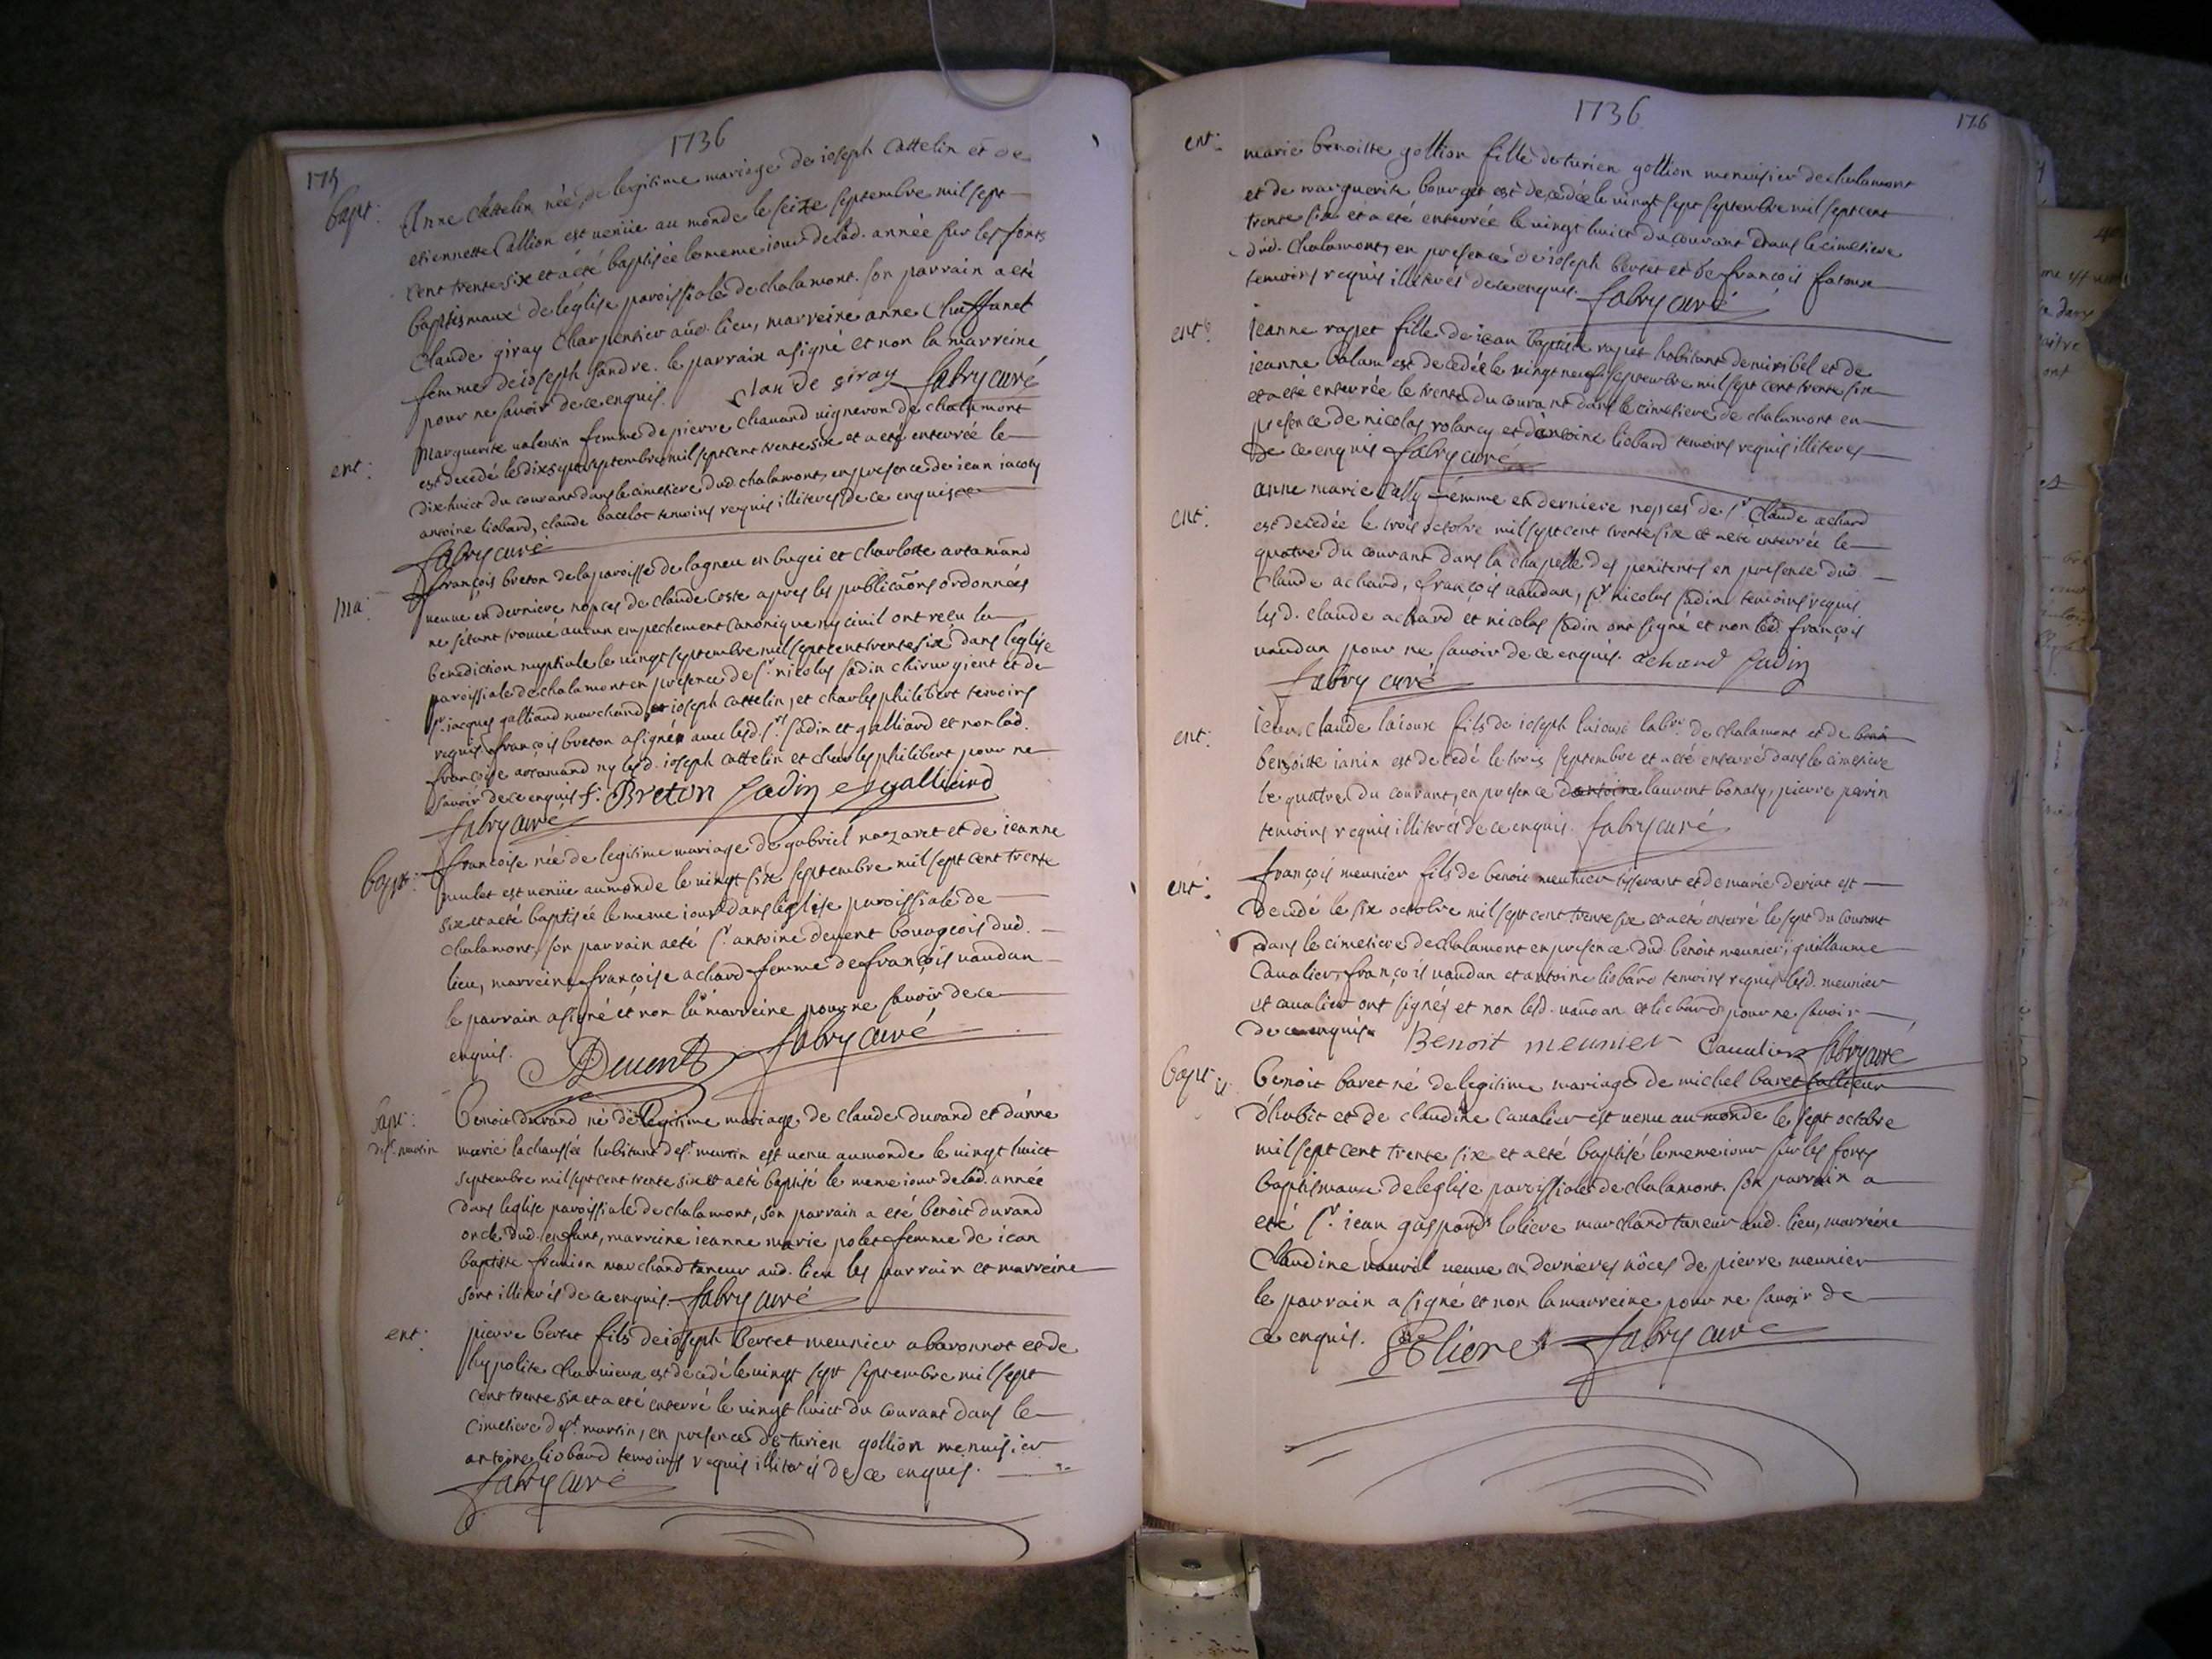 1736
175
bapt:
Anne Cattelin née de legitime mariage de ioseph Cattelin et de
etiennette Callion est venüe au monde le seize septembre mil sept
cent trente six et a été baptisée le meme iour delad. année sur les fonts
baptismaux de l'église paroissiale de chalamont. son parrain a eté
Claude giray Charpentier aud. lieu, marreine anne Chaffanet
femme de ioseph sandre. le parrain a signé et non la marreine
pour ne savoir de ce enquis. Clau de giray fabry curé
ent:
Marguerite valentin femme de pierre Chavand vigneron de chalamont
est decedé le dixsept septembre mil sept cent trente six et a eté enterrée le
dix huict du courant dans le cimetiere dud. chalamont, en presence de iean iacoty
antoine liobard, claude bacelot temoins requis illiteres de ce enquis
fabry curé
Ma:
françois breton de la paroisse de lagneu en bugei et Charlotte artamand
veuve en derniere nopces de claude Coste apres les publicaons ordonnées
ne s'étant trouvé aucun empechement Canonique ny civil ont reçu la
benediction nuptiale le vingt septembre mil sept cent trente six dans l'eglise
paroissiale de chalamont en presence de sr. nicolas sadin chirurgient et de
sr. iacques galliand marchand, et ioseph cattelin, et charles philibert temoins
requis françois breton a signé avec lesd. srs. sadin et galliard et non lad.
françoise artamand ny lesd. ioseph cattelin et charles philibert pour ne
savoir de ce enquis f. Breton Sadin galliand
fabry curé
bapt:
francoise née de legitime mariage de gabriel nazaret et de ieanne
mulet est venüe au monde le vingt six septembre mil sept cent trente
six et a eté baptisée le meme iour dans l'eglise paroissiale de
chalamont. son parrain a eté sr. antoine devent bourgeois dud.
lieu, marreine françoise achard femme de françois vaudan
le parrain a signé et non la marreine pour ne savoir de ce
enquis. Devent fabry curé
bapt:
de st. martin
benoit durand né de legitime mariage de claude durand et d'anne
marie lachaussée habitant de st. martin est venu au monde le vingt huict
septembre mil sept cent trente six et a eté baptisé le meme iour delad. année
dans l'eglise paroissiale de chalamont, son parrain a eté benoit durand
oncle dud. enfant, marreine ieanne marie polet femme de iean
baptiste marchand taneur aud. lieu les parrain et marreine
sont illiterés de ce enquis. fabry curé
ent:
pierre bertet fils de ioseph bertet meunier a baronnot et de
hypolite Charvieux est decedé le vingt sept septembre mil sept
cent trente six et a eté enterré le vingt huict du courant dans le
cimetiere de st. martin, en presence de turien gollion menuisier
antoine liobard temoins requis illiterés de ce enquis.
fabry curé
1736
176
ent:
marie benoitte gollion fille de turien gollion menuisier de chalamont
et de marguerite bourget est decedée le vingt sept septembre mil sept cent
trente six et a eté enterrée le vingt huict du courant dans le cimetiere
dud. Chalamont, en presence de ioseph bertet et de françois fatoux
temoins requis illiterés de ce enquis. fabry curé
ent:
ieanne rapet fille de iean baptiste rapet habitant de miribel et de
ieanne balam est decedée le vingt neuf septembre mil sept cent trente six
et a eté enterrée le trente du courant dans le cimetiere de chalamont en
presence de nicolas rolancy et d'antoine liobard temoins requis illiteres
de ce enquis fabry curé
ent:
anne marie Cally femme en derniere nopces de sr. Claude achard
est decedée le trois octobre mil sept cent trente six et a eté enterrée le
quatre du courant dans la chapelle des penitents en presence dud.
Claude achard, françois vaudan, sr. nicolas sadin temoins requis
lesd. claude achard et nicolas sadin ont signé et non led. françois
vaudan pour ne savoir de ce enquis. achard Sadin
fabry curé
ent:
iean Claude laioux fils de ioseph laioux labr. de chalamont et de
benoiste ianin est decedé le trois septembre et a eté enterré dans le cimetiere
le quatre du courant, en presence d'antoine laurent bonaty, pierre perrin
temoins requis illiterés de ce enquis. fabry curé
ent:
françois meunier fils de benoit meunier tisserant et de marie deriat est
decedé le six octobre mil sept cent trente six et a eté enterré le sept du courant
dans le cimetiere de chalamont en presence dud. benoit meunier, guillaume
Cavalier, françois vaudan et antoine liobard temoins requis lesd. meunier
et cavalier ont signés et non lesd. vaudan et liobard pour ne savoir
de ce enquis. Benoit meunier Cavalier fabry curé
bapt:
benoit baret né de legitime mariage de michel baret
d'hubit et de claudine Cavalier est venu au monde le sept octobre
mil sept cent trente six et a eté baptisé le meme iour sur les fonts
baptismaux de leglise paroissiale de chalamont. son parrain a
eté sr. iean gaspard lolieve marchand taneur aud. lieu, marreine
Claudine veuve en dernieres nôces de pierre meunier
le parrain a signé et non la marreine pour ne savoir de
ce enquis. fabry curé